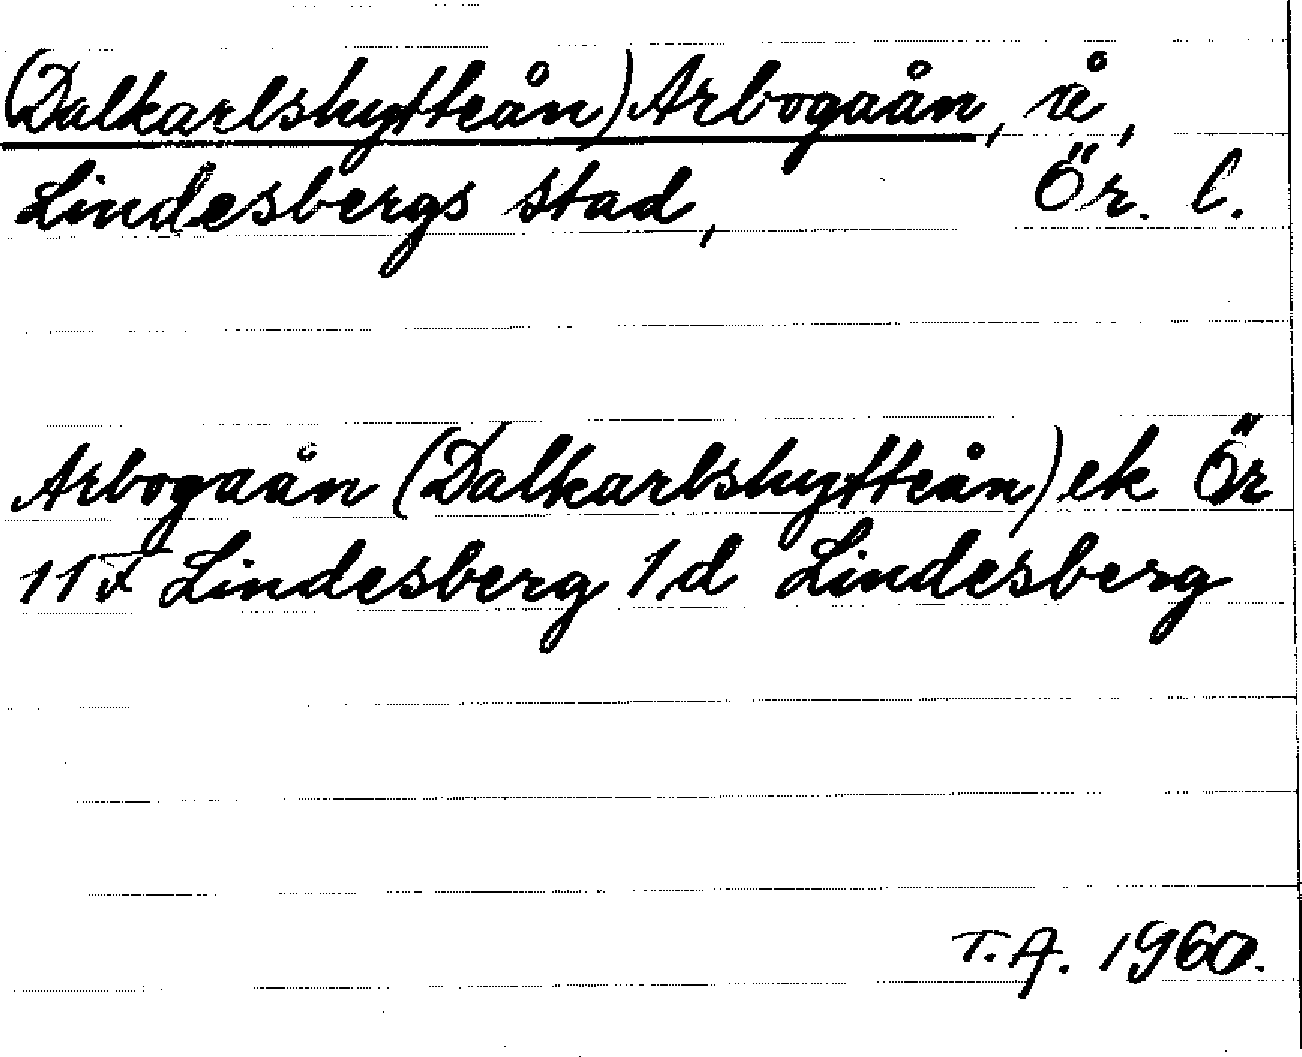 (Dalkarlshytteån) Arbogaån, å,
Lindesbergs stad, Ör. l.
Arbogaån (Dalkarlshytteån) ek Ör
11F Lindesberg 1d Lindesberg
T.A. 1960.